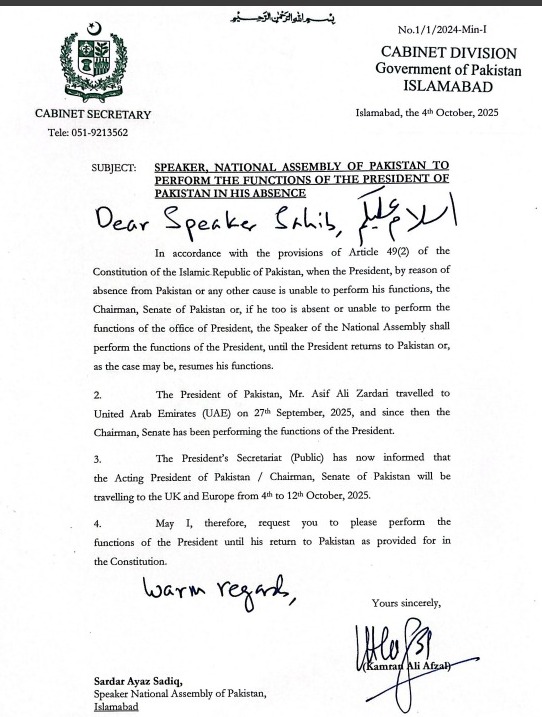 بسم اللہ الرحمٰن الرحیم
No.1/1/2024-Min-I
CABINET DIVISION
Government of Pakistan
ISLAMABAD
Islamabad, the 4th October, 2025
CABINET SECRETARY
Tele: 051-9213562
SUBJECT: SPEAKER, NATIONAL ASSEMBLY OF PAKISTAN TO
PERFORM THE FUNCTIONS OF THE PRESIDENT OF
PAKISTAN IN HIS ABSENCE
Dear Speaker Sahib, السلام علیکم
In accordance with the provisions of Article 49(2) of the
Constitution of the Islamic Republic of Pakistan, when the President, by reason of
absence from Pakistan or any other cause is unable to perform his functions, the
Chairman, Senate of Pakistan or, if he too is absent or unable to perform the
functions of the office of President, the Speaker of the National Assembly shall
perform the functions of the President, until the President returns to Pakistan or,
as the case may be, resumes his functions.
2. The President of Pakistan, Mr. Asif Ali Zardari travelled to
United Arab Emirates (UAE) on 27th September, 2025, and since then the
Chairman, Senate has been performing the functions of the President.
3. The President's Secretariat (Public) has now informed that
the Acting President of Pakistan / Chairman, Senate of Pakistan will be
travelling to the UK and Europe from 4th to 12th October, 2025.
4. May I, therefore, request you to please perform the
functions of the President until his return to Pakistan as provided for in
the Constitution.
Warm regards,
Yours sincerely,
(Kamran Ali Afzal)
Sardar Ayaz Sadiq,
Speaker National Assembly of Pakistan,
Islamabad